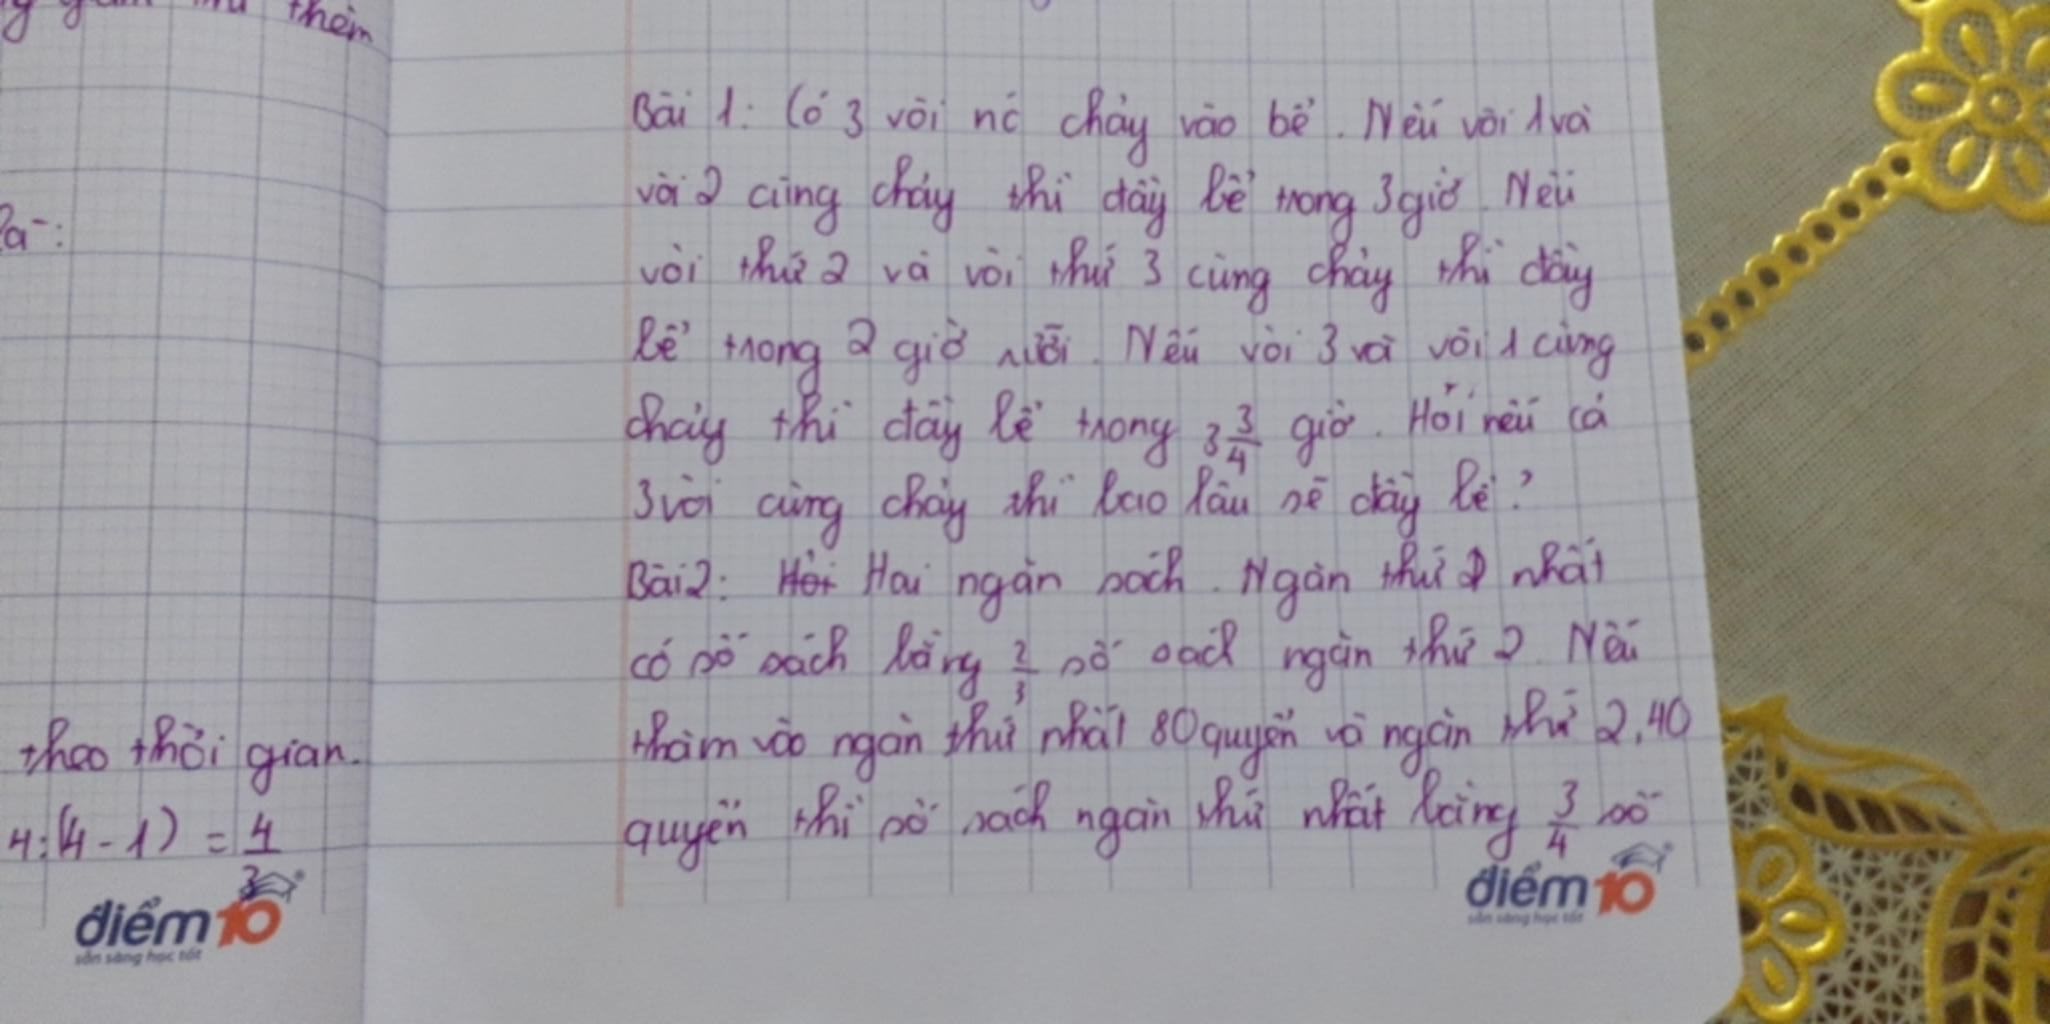 thêm
theo thời gian.
4:(4-1) = 4/3
điểm 10
sẵn sàng học tốt
Bài 1: Có 3 vòi nc chảy vào bể. Nếu vòi 1 và
vòi 2 cùng chảy thì đầy bể trong 3 giờ. Nếu
vòi thứ 2 và vòi thứ 3 cùng chảy thì đầy
bể trong 2 giờ rưỡi. Nếu vòi 3 và vòi 1 cùng
chảy thì đầy bể trong 3 3/4 giờ. Hỏi nếu cả
3 vòi cùng chảy thì bao lâu sẽ đầy bể?
Bài 2: Hỏi Hai ngăn sách. Ngăn thứ nhất
có số sách bằng 2/3 số sách ngăn thứ 2. Nếu
thêm vào ngăn thứ nhất 80 quyển và ngăn thứ 2, 40
quyển thì số sách ngăn thứ nhất bằng 3/4 số
điểm 10
sẵn sàng học tốt